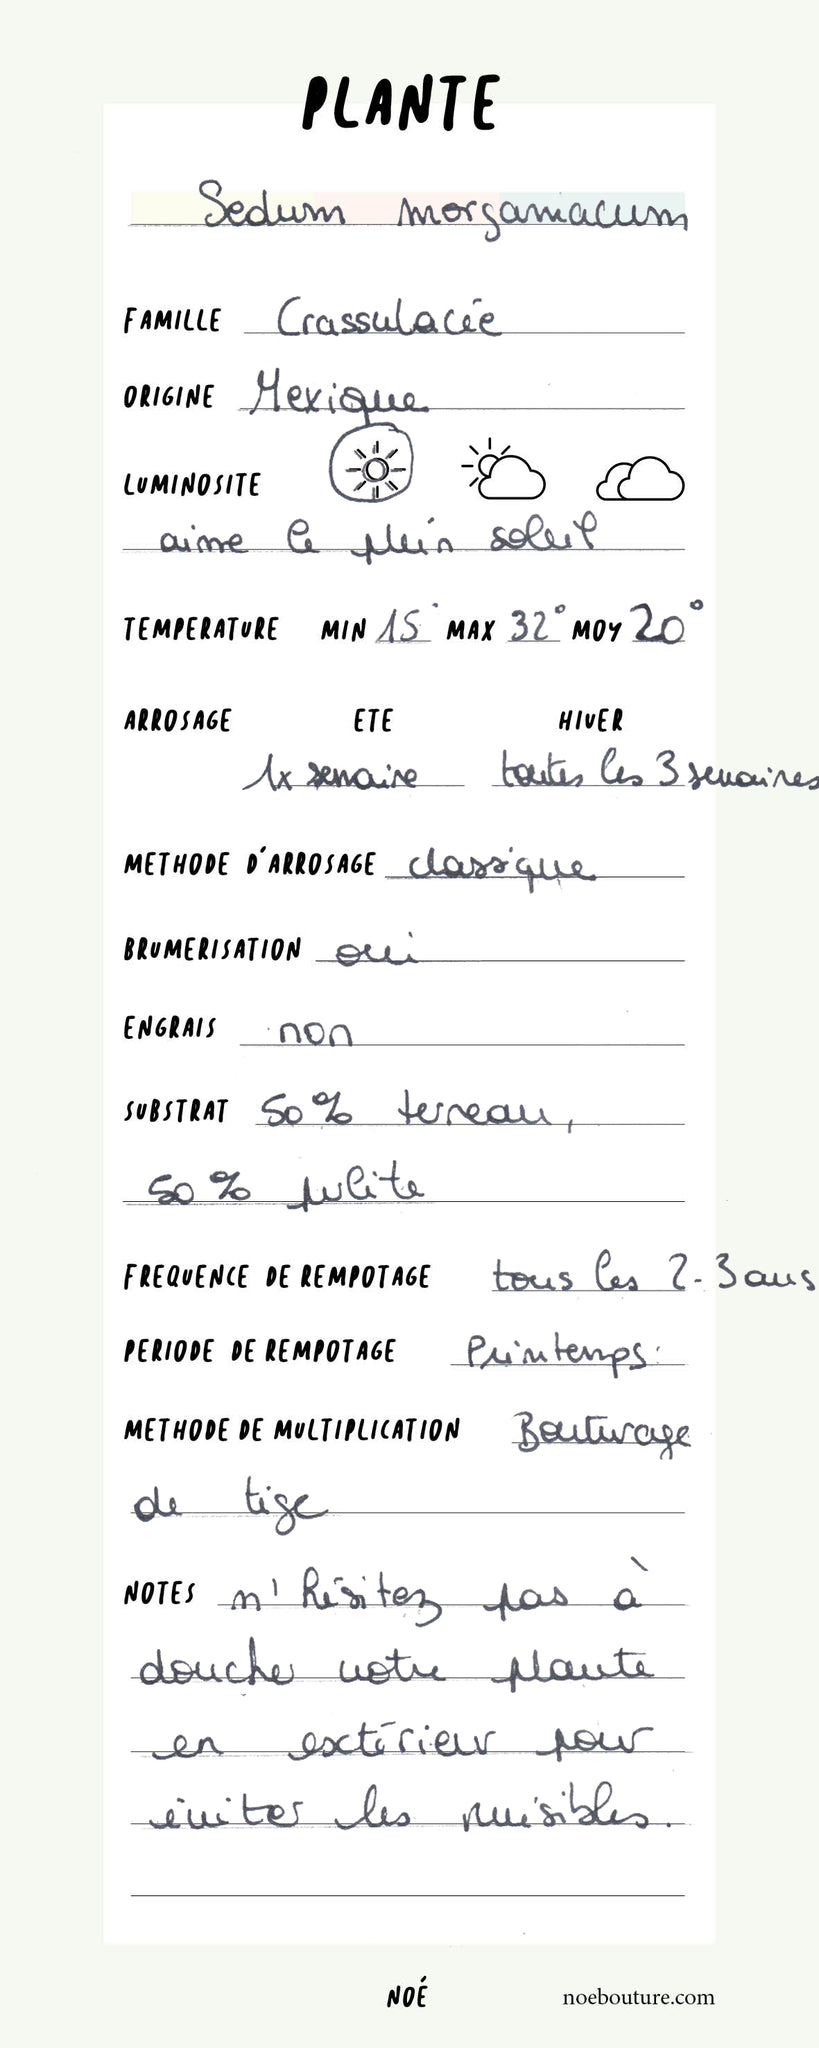 PLANTE
Sedum morganiacum
FAMILLE Crassulacée
ORIGINE Mexique
LUMINOSITE
aime le plein soleil
TEMPERATURE MIN 15° MAX 32° MOY 20°
ARROSAGE ETE HIVER
1x semaine toutes les 3 semaines
METHODE D'ARROSAGE classique
BRUMERISATION oui
ENGRAIS non
SUBSTRAT 50% terreau,
50% perlite
FREQUENCE DE REMPOTAGE tous les 2-3 ans
PERIODE DE REMPOTAGE Printemps.
METHODE DE MULTIPLICATION Bouturage
de tige
NOTES n'hésitez pas à
doucher votre plante
en extérieur pour
éviter les nuisibles.
NOÉ noebouture.com